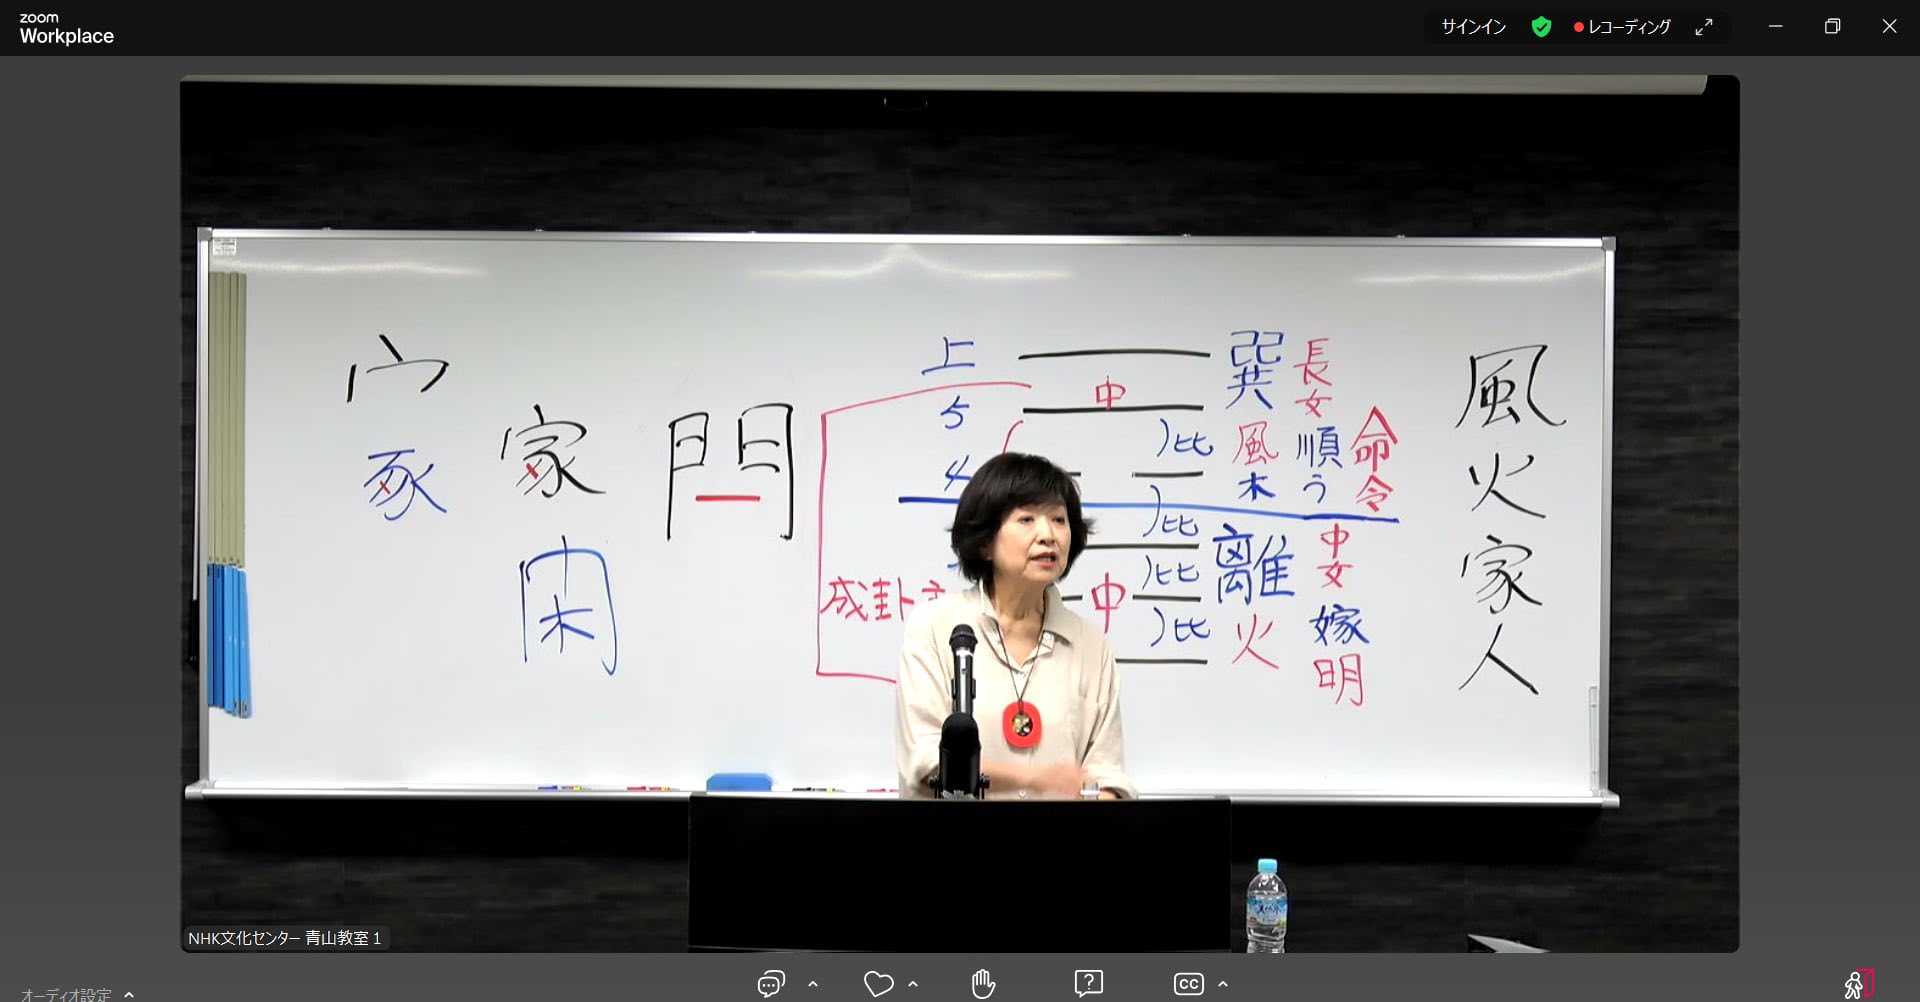 zoom
Workplace
サインイン
レコーディング
風火家人
長女
巽
命令
順う
風
木
中女
嫁
明
離
火
上
5
4
中
比
比
比
比
中
成卦主
門
家
閑
宀
豕
NHK文化センター 青山教室 1
オーディオ設定
CC